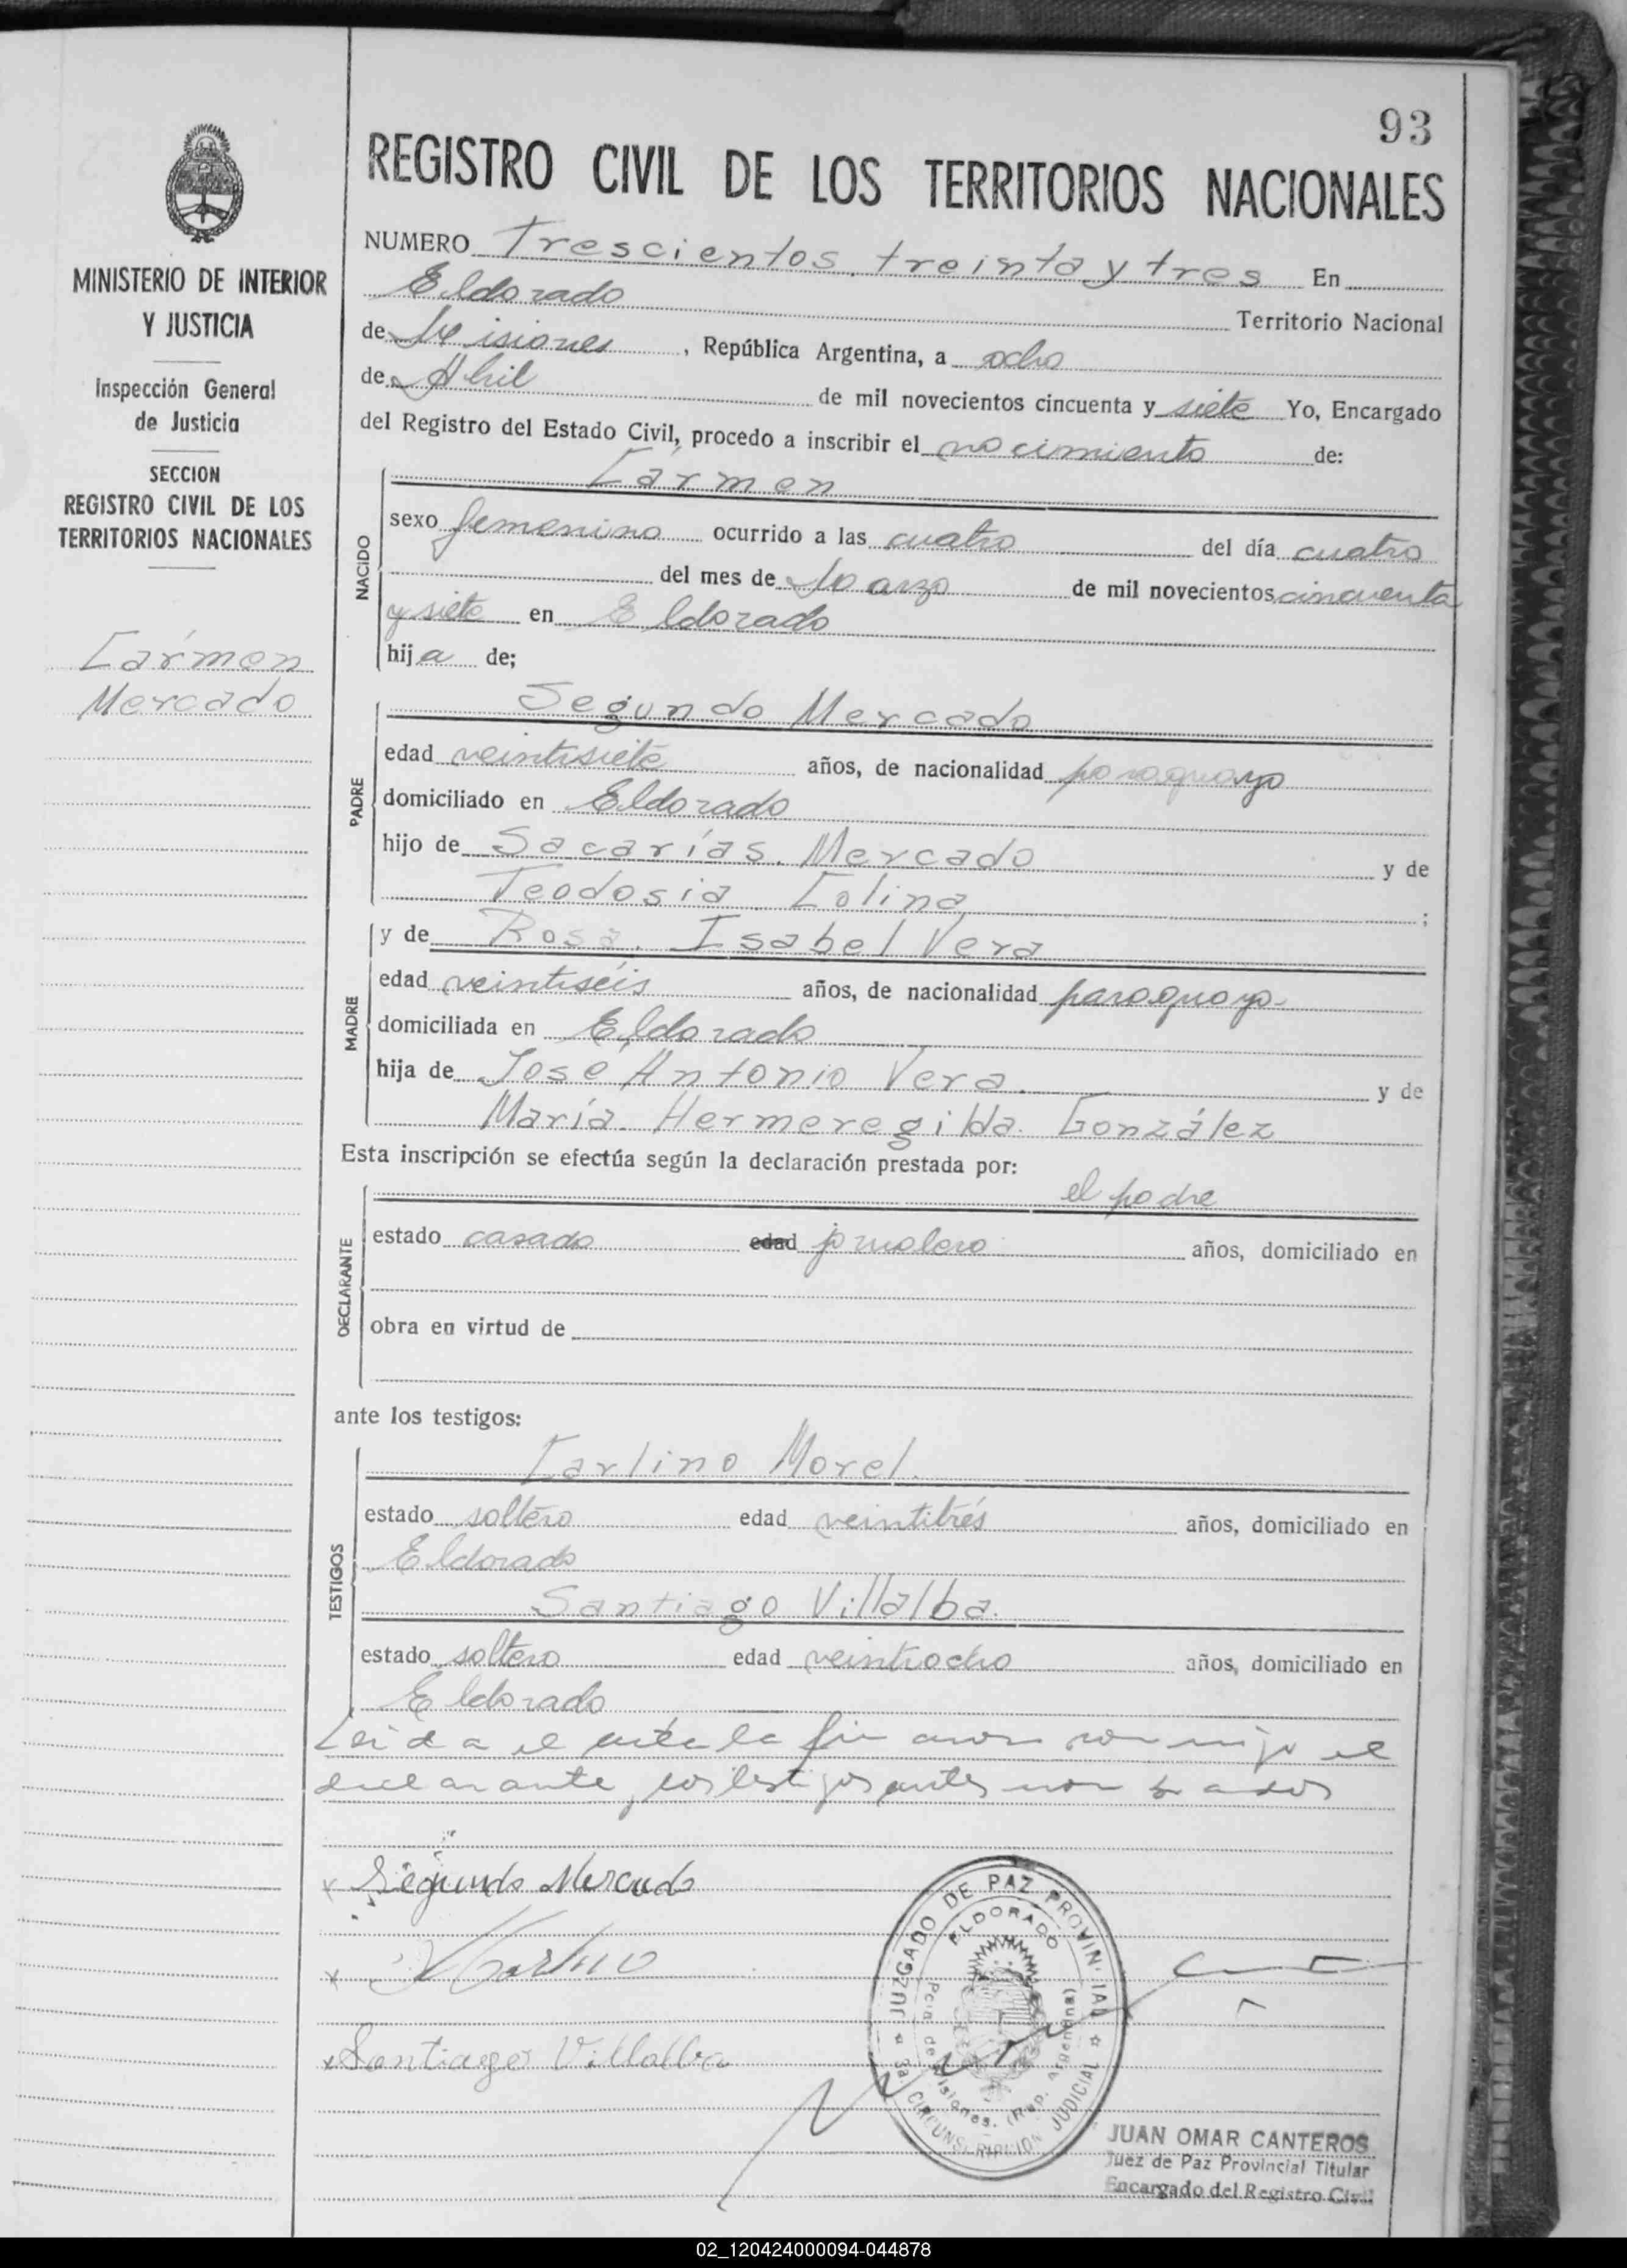 93
REGISTRO CIVIL DE LOS TERRITORIOS NACIONALES
MINISTERIO DE INTERIOR
Y JUSTICIA
Inspección General
de Justicia
SECCION
REGISTRO CIVIL DE LOS
TERRITORIOS NACIONALES
Cármen
Mercado
NUMERO Trescientos treinta y tres En
Eldorado Territorio Nacional
de Misiones, República Argentina, a ocho
de Abril de mil novecientos cincuenta y siete Yo, Encargado
del Registro del Estado Civil, procedo a inscribir el nacimiento de:
NACIDO
Cármen
sexo femenino ocurrido a las cuatro del día cuatro
del mes de Marzo de mil novecientos cincuenta
y siete en Eldorado
hija de;
PADRE
Segundo Mercado
edad veintisiete años, de nacionalidad paraguayo
domiciliado en Eldorado
hijo de Sacarías Mercado y de
Teodosia Colina;
MADRE
y de Rosa Isabel Vera
edad veintiséis años, de nacionalidad paraguaya
domiciliada en Eldorado
hija de José Antonio Vera y de
María Hermeregilda González
Esta inscripción se efectúa según la declaración prestada por:
DECLARANTE
el padre
estado casado edad jornalero años, domiciliado en
obra en virtud de
ante los testigos:
TESTIGOS
Carlino Morel.
estado soltero edad veintitrés años, domiciliado en
Eldorado
Santiago Villalba.
estado soltero edad veintiocho años, domiciliado en
Eldorado
Leida el acta la firmaron conmigo el
declarante, los testigos antes nombrados
Segundo Mercado
Santiago Villalba
JUZGADO DE PAZ PROVINCIAL
ELDORADO
Pcia. de Misiones. (Rep. Argentina)
3a. CIRCUNSCRIPCION JUDICIAL
JUAN OMAR CANTEROS
Juez de Paz Provincial Titular
Encargado del Registro Civil
02_120424000094-044878